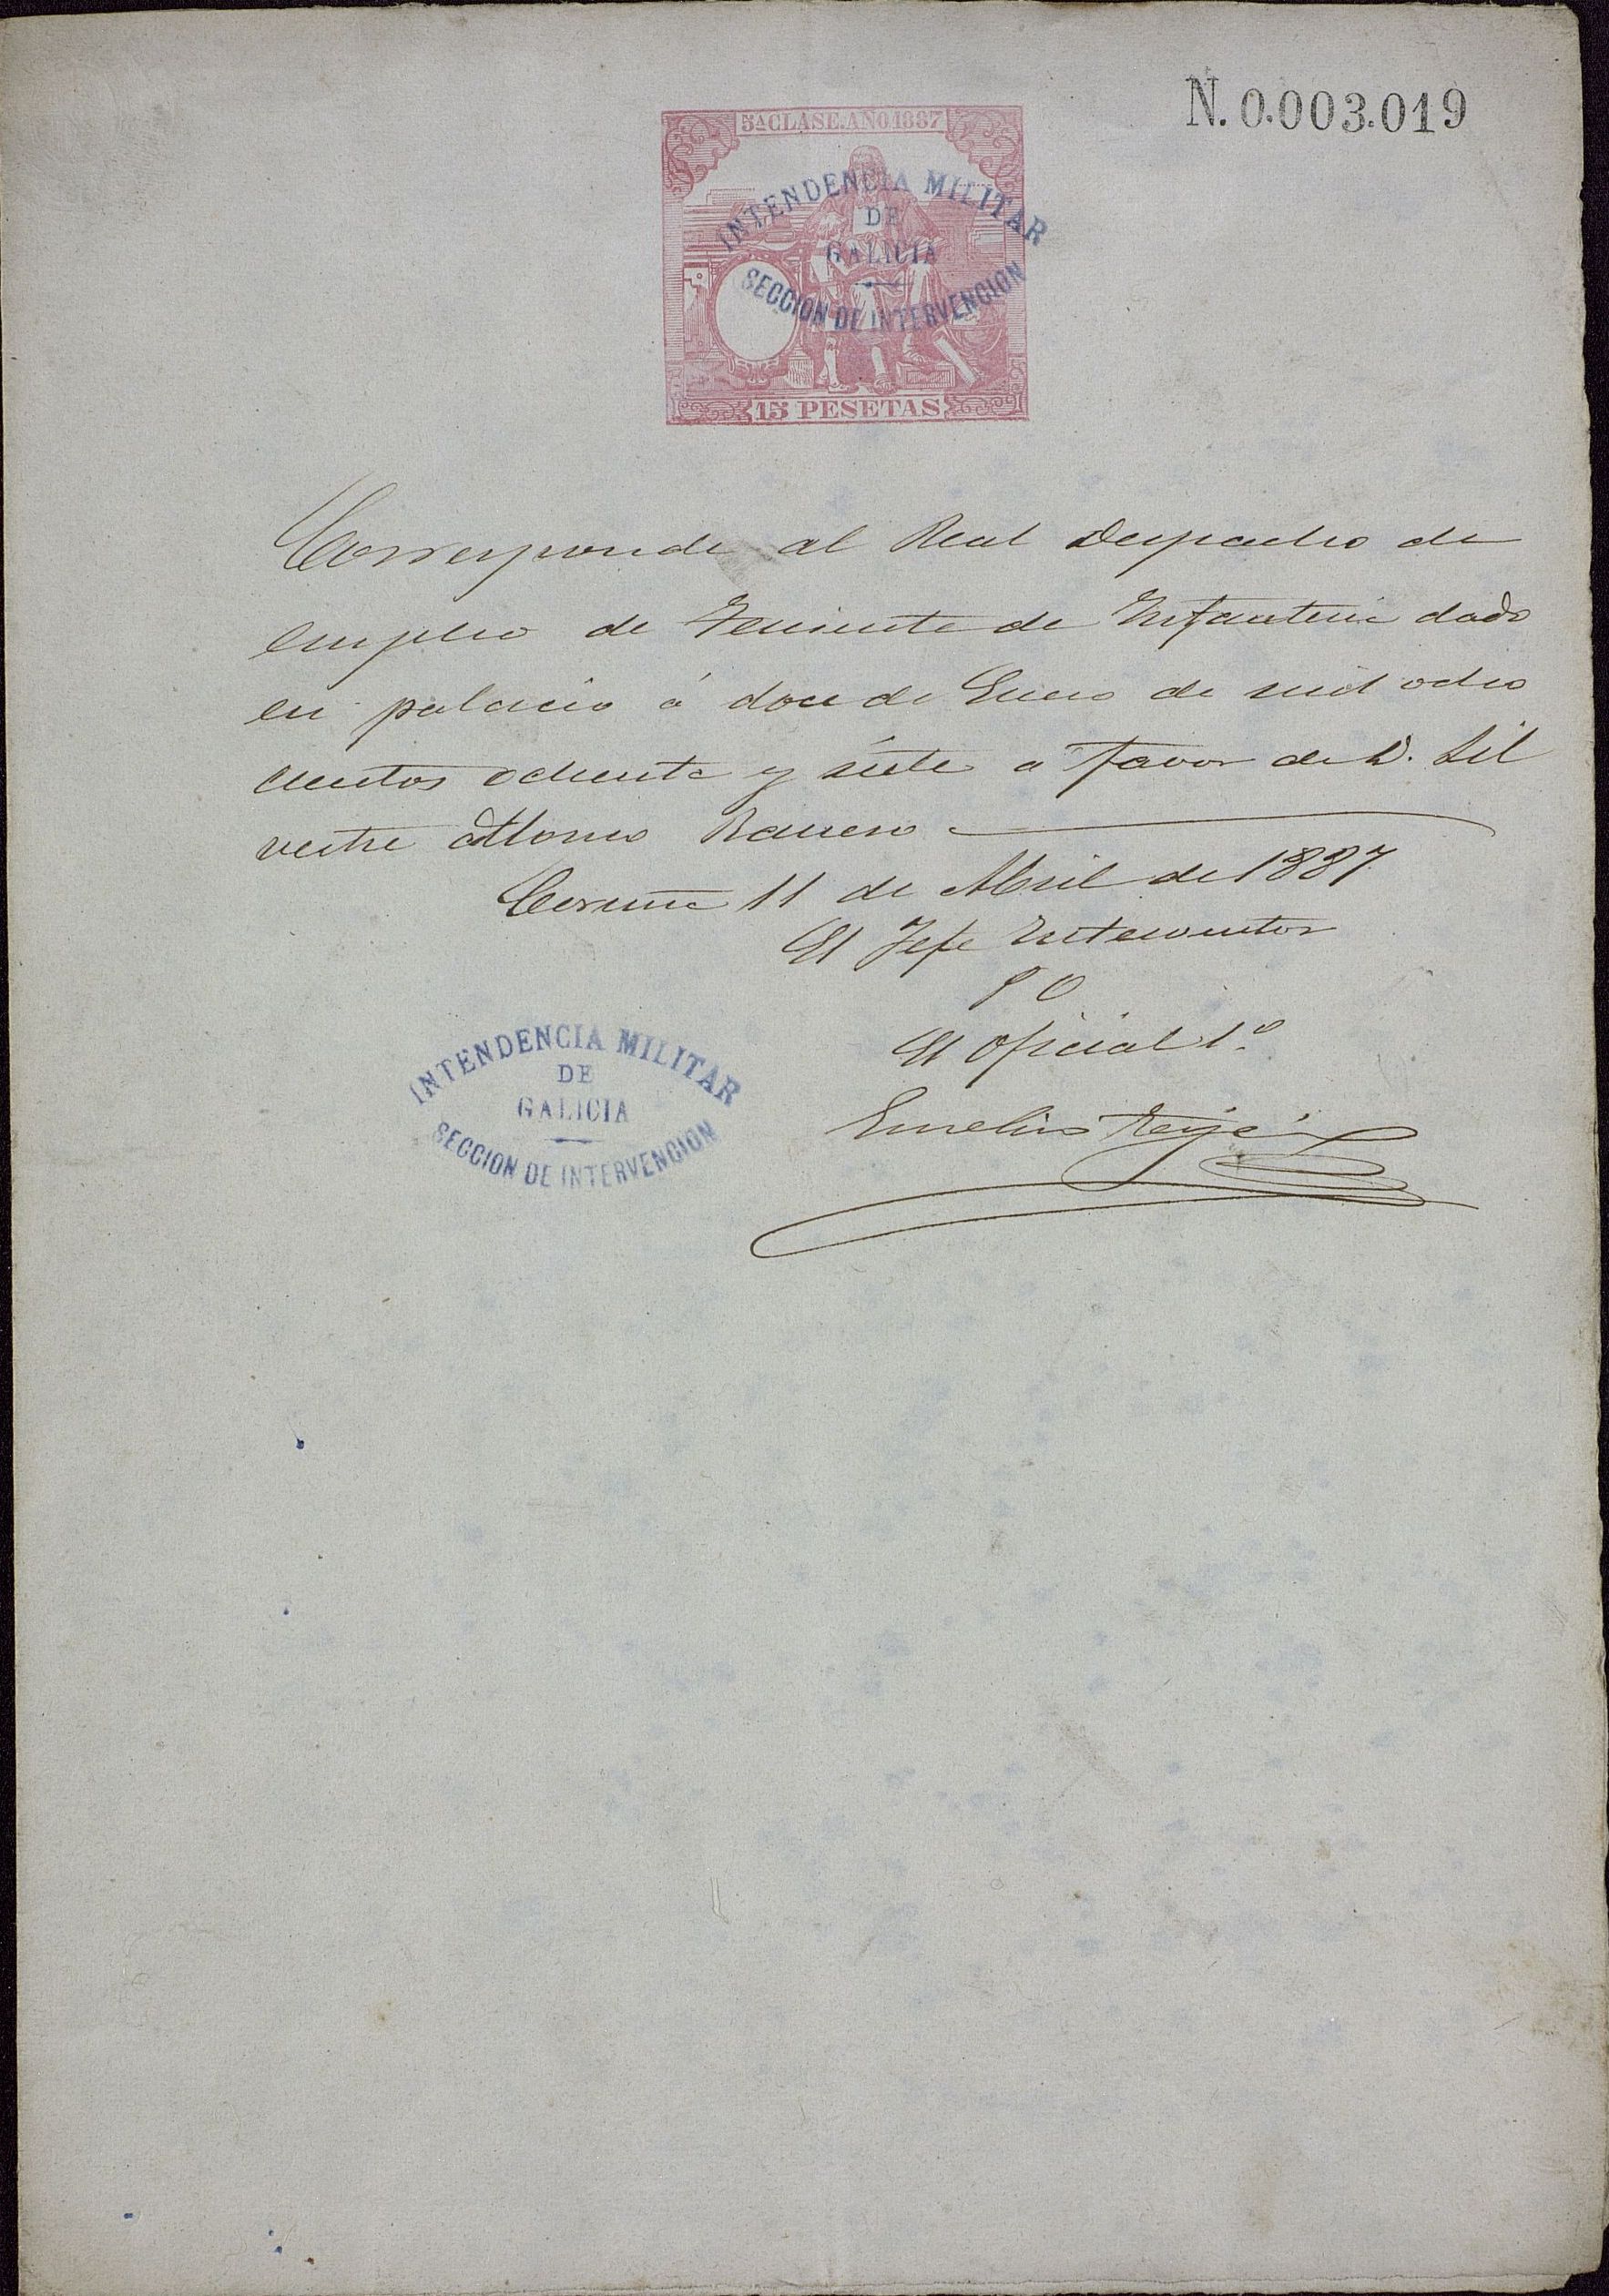 N. 0.003.019
5ª CLASE. AÑO 1887
INTENDENCIA MILITAR
DE
GALICIA
SECCION DE INTERVENCION
15 PESETAS
Corresponde al Real Despacho de
empleo de Teniente de Infanteria dado
en palacio á doce de Enero de mil ocho
cientos ochenta y siete a favor de D. Sil
vestre Alonso
Coruña 11 de Abril de 1887
El Jefe Interventor
P O
El Oficial 1º
INTENDENCIA MILITAR
DE
GALICIA
SECCION DE INTERVENCION